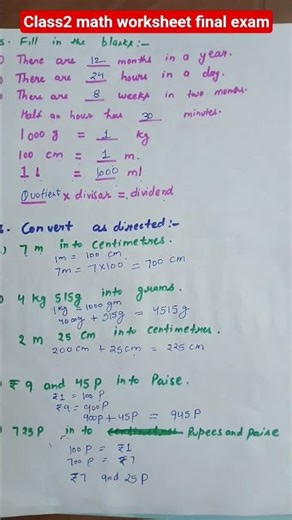 Class2 math worksheet final exam
s. Fill in the blanks:-
There are 12 months in a year.
There are 24 hours in a day.
There are 8 weeks in two months.
Half an hour has 30 minutes.
1000 g = 1 kg
100 cm = 1 m.
1 L = 1000 ml
Quotient x divisor = dividend
Convert as directed:-
7 m into centimetres.
1m = 100 cm
7m = 7x100 = 700 cm
4 kg 515g into grams.
1kg = 1000 gm
4000g + 515g = 4515g
2 m 25 cm into centimetres.
200 cm + 25 cm = 225 cm
₹ 9 and 45 P into Paise.
₹1 = 100 P
₹9 = 900 P
900P + 45P = 945 P
725 P in to Rupees and paise
100 P = ₹1
700 P = ₹7
₹7 and 25 P